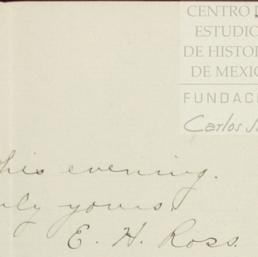 CENTRO
ESTUDIO
DE HISTOR
DE MEXIC
FUNDACI
Carlos
his evening.
yours
E. H. Ross.